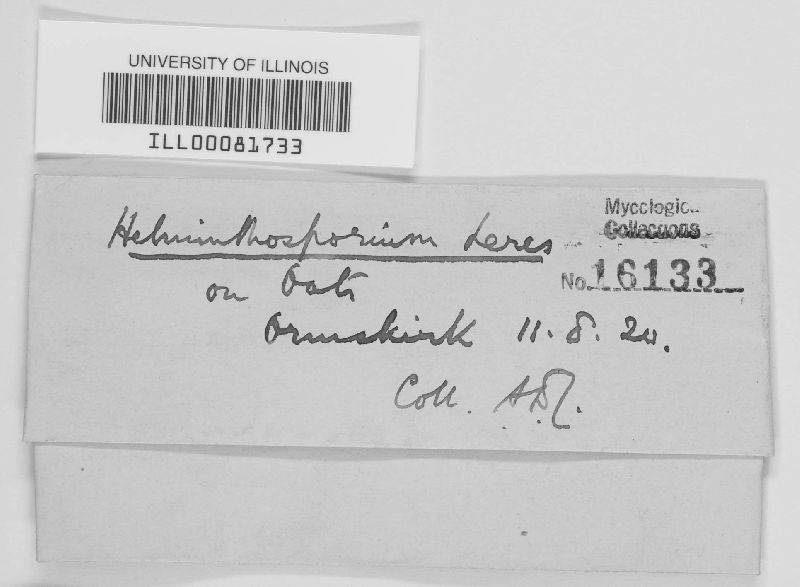 UNIVERSITY OF ILLINOIS
ILL00081733
Mycologic
Collections
No. 16133
Helminthosporium teres
on Oats
Ormskirk 11.8.20.
Coll.